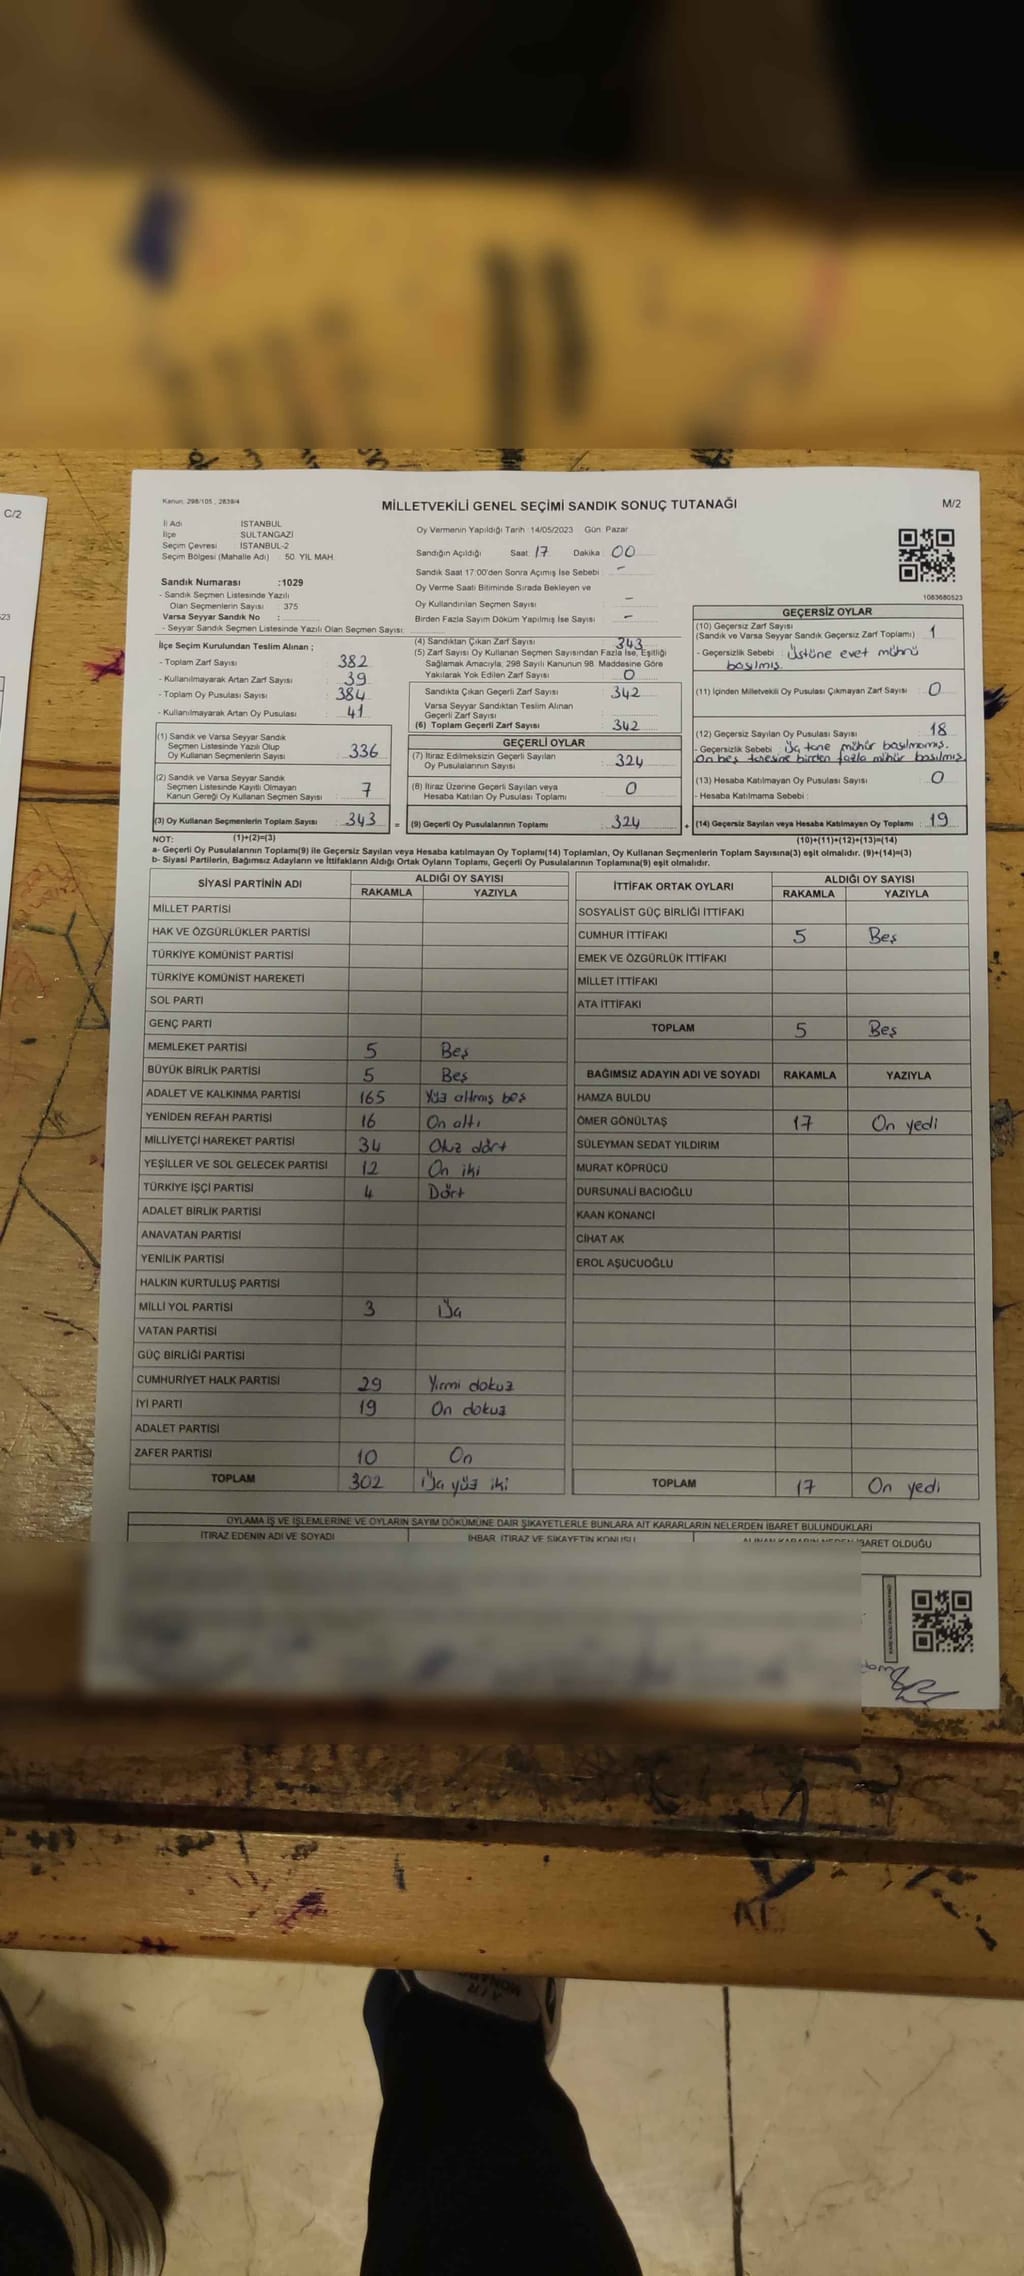 C/2
Kanun: 298/105 , 2839/4
MİLLETVEKİLİ GENEL SEÇİMİ SANDIK SONUÇ TUTANAĞI
M/2
İl Adı İSTANBUL
İlçe SULTANGAZİ
Seçim Çevresi İSTANBUL-2
Seçim Bölgesi (Mahalle Adı) 50. YIL MAH.
Sandık Numarası :1029
- Sandık Seçmen Listesinde Yazılı
Olan Seçmenlerin Sayısı : 375
Varsa Seyyar Sandık No :
- Seyyar Sandık Seçmen Listesinde Yazılı Olan Seçmen Sayısı:
Oy Vermenin Yapıldığı Tarih :14/05/2023 Gün: Pazar
Sandığın Açıldığı Saat: 17 Dakika: 00
Sandık Saat 17:00'den Sonra Açımış İse Sebebi : -
Oy Verme Saati Bitiminde Sırada Bekleyen ve
Oy Kullandırılan Seçmen Sayısı -
Birden Fazla Sayım Döküm Yapılmış İse Sayısı -
1083680523
23
İlçe Seçim Kurulundan Teslim Alınan ;
- Toplam Zarf Sayısı 382
- Kullanılmayarak Artan Zarf Sayısı 39
- Toplam Oy Pusulası Sayısı 384
- Kullanılmayarak Artan Oy Pusulası 41
(1) Sandık ve Varsa Seyyar Sandık
Seçmen Listesinde Yazılı Olup
Oy Kullanan Seçmenlerin Sayısı 336
(2) Sandık ve Varsa Seyyar Sandık
Seçmen Listesinde Kayıtlı Olmayan
Kanun Gereği Oy Kullanan Seçmen Sayısı 7
(3) Oy Kullanan Seçmenlerin Toplam Sayısı 343 =
(4) Sandıktan Çıkan Zarf Sayısı 343
(5) Zarf Sayısı Oy Kullanan Seçmen Sayısından Fazla İse, Eşitliği
Sağlamak Amacıyla, 298 Sayılı Kanunun 98. Maddesine Göre
Yakılarak Yok Edilen Zarf Sayısı 0
Sandıkta Çıkan Geçerli Zarf Sayısı 342
Varsa Seyyar Sandıktan Teslim Alınan
Geçerli Zarf Sayısı
(6) Toplam Geçerli Zarf Sayısı 342
GEÇERLİ OYLAR
(7) İtiraz Edilmeksizin Geçerli Sayılan
Oy Pusulalarının Sayısı 324
(8) İtiraz Üzerine Geçerli Sayılan veya
Hesaba Katılan Oy Pusulası Toplamı 0
(9) Geçerli Oy Pusulalarının Toplamı 324 +
GEÇERSİZ OYLAR
(10) Geçersiz Zarf Sayısı
(Sandık ve Varsa Seyyar Sandık Geçersiz Zarf Toplamı) 1
- Geçersizlik Sebebi : Üstüne evet mührü
basılmış.
(11) İçinden Milletvekili Oy Pusulası Çıkmayan Zarf Sayısı : 0
(12) Geçersiz Sayılan Oy Pusulası Sayısı 18
- Geçersizlik Sebebi : Üç tane mühür basılmamış.
On beş tanesine birden fazla mühür basılmış.
(13) Hesaba Katılmayan Oy Pusulası Sayısı 0
- Hesaba Katılmama Sebebi :
(14) Geçersiz Sayılan veya Hesaba Katılmayan Oy Toplamı : 19
NOT: (1)+(2)=(3) (10)+(11)+(12)+(13)=(14)
a- Geçerli Oy Pusulalarının Toplamı(9) ile Geçersiz Sayılan veya Hesaba katılmayan Oy Toplamı(14) Toplamları, Oy Kullanan Seçmenlerin Toplam Sayısına(3) eşit olmalıdır. (9)+(14)=(3)
b- Siyasi Partilerin, Bağımsız Adayların ve İttifakların Aldığı Ortak Oyların Toplamı, Geçerli Oy Pusulalarının Toplamına(9) eşit olmalıdır.
SİYASİ PARTİNİN ADI ALDIĞI OY SAYISI
RAKAMLA YAZIYLA
MİLLET PARTİSİ
HAK VE ÖZGÜRLÜKLER PARTİSİ
TÜRKİYE KOMÜNİST PARTİSİ
TÜRKİYE KOMÜNİST HAREKETİ
SOL PARTİ
GENÇ PARTİ
MEMLEKET PARTİSİ 5 Beş
BÜYÜK BİRLİK PARTİSİ 5 Beş
ADALET VE KALKINMA PARTİSİ 165 Yüz altmış beş
YENİDEN REFAH PARTİSİ 16 On altı
MİLLİYETÇİ HAREKET PARTİSİ 34 Otuz dört
YEŞİLLER VE SOL GELECEK PARTİSİ 12 On iki
TÜRKİYE İŞÇİ PARTİSİ 4 Dört
ADALET BİRLİK PARTİSİ
ANAVATAN PARTİSİ
YENİLİK PARTİSİ
HALKIN KURTULUŞ PARTİSİ
MİLLİ YOL PARTİSİ 3 Üç
VATAN PARTİSİ
GÜÇ BİRLİĞİ PARTİSİ
CUMHURİYET HALK PARTİSİ 29 Yirmi dokuz
İYİ PARTİ 19 On dokuz
ADALET PARTİSİ
ZAFER PARTİSİ 10 On
TOPLAM 302 Üç yüz iki
İTTİFAK ORTAK OYLARI ALDIĞI OY SAYISI
RAKAMLA YAZIYLA
SOSYALİST GÜÇ BİRLİĞİ İTTİFAKI
CUMHUR İTTİFAKI 5 Beş
EMEK VE ÖZGÜRLÜK İTTİFAKI
MİLLET İTTİFAKI
ATA İTTİFAKI
TOPLAM 5 Beş
BAĞIMSIZ ADAYIN ADI VE SOYADI RAKAMLA YAZIYLA
HAMZA BULDU
ÖMER GÖNÜLTAŞ 17 On yedi
SÜLEYMAN SEDAT YILDIRIM
MURAT KÖPRÜCÜ
DURSUNALİ BACIOĞLU
KAAN KONANCİ
CİHAT AK
EROL AŞUCUOĞLU
TOPLAM 17 On yedi
OYLAMA İŞ VE İŞLEMLERİNE VE OYLARIN SAYIM DÖKÜMÜNE DAİR ŞİKAYETLERLE BUNLARA AİT KARARLARIN NELERDEN İBARET BULUNDUKLARI
İTİRAZ EDENİN ADI VE SOYADI İHBAR, İTİRAZ VE ŞİKAYETİN KONUSU ALINAN KARARIN NEDEN İBARET OLDUĞU
AIR